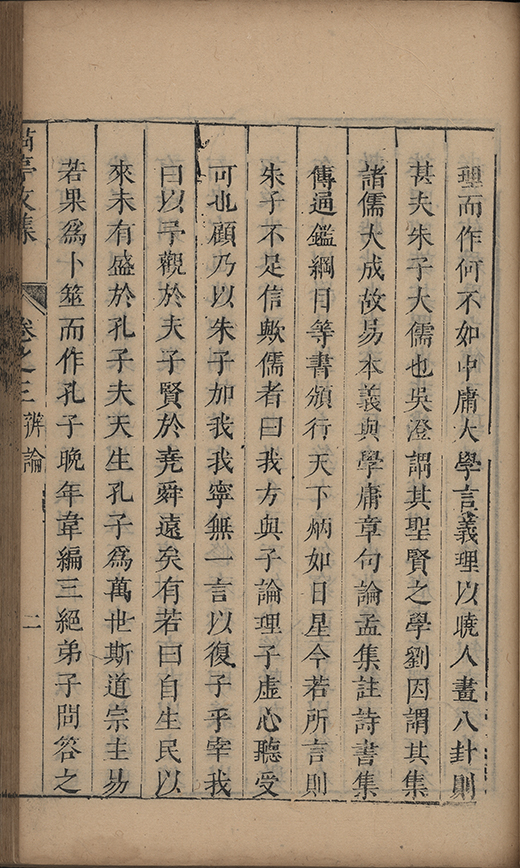 理而作何不如中庸大學言義理以曉人畫八卦則
甚夫朱子大儒也吳澄謂其聖賢之學劉因謂其集
諸儒大成故易本義與學庸章句論孟集註詩書集
傳通鑑綱目等書頒行天下炳如日星今若所言則
朱子不足信歟儒者曰我方與子論理子虛心聽受
可也顧乃以朱子加我我寧無一言以復子乎宰我
曰以予觀於夫子賢於堯舜遠矣有若曰自生民以
來未有盛於孔子夫天生孔子為萬世斯道宗主易
若果爲卜筮而作孔子晚年韋編三絕弟子問答之
亭文集 卷之三 辨論 二